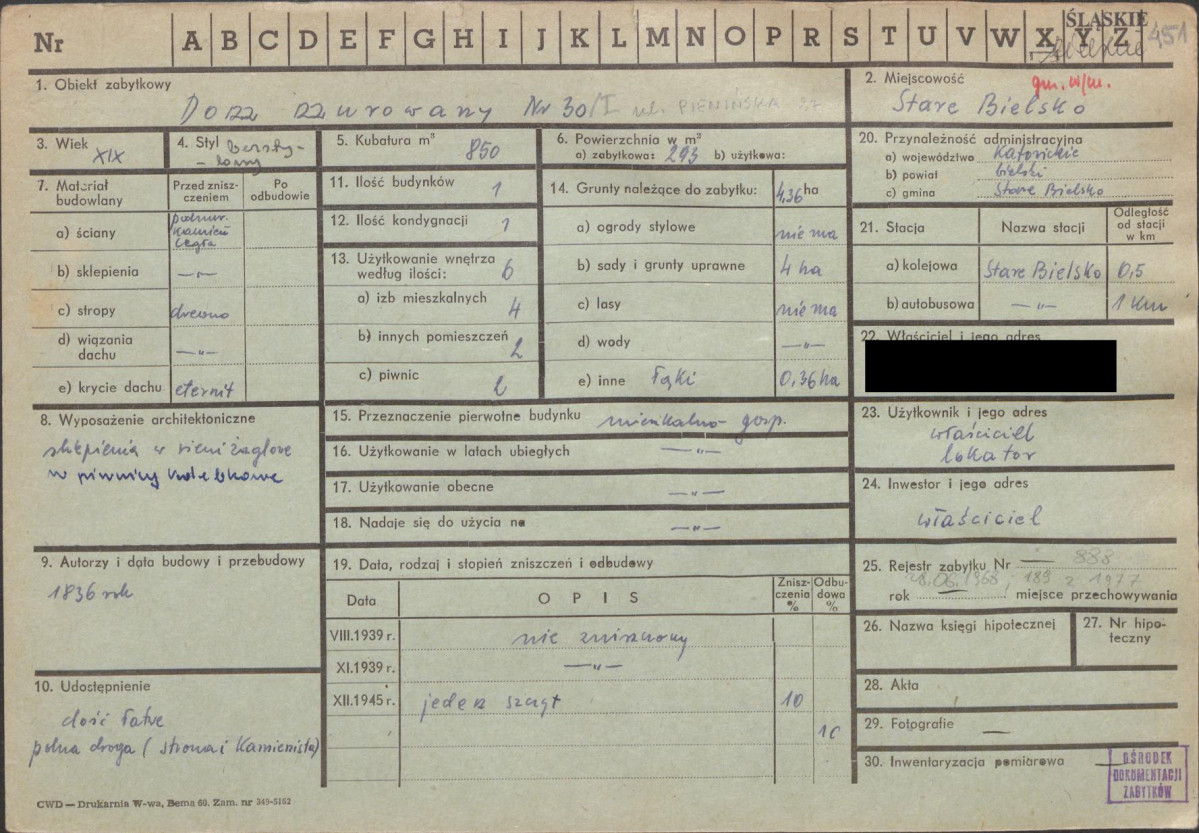 ŚLĄSKIE
451
Nr A B C D E F G H I J K L M N O P R S T U V W X Y Z
1. Obiekt zabytkowy
Dom murowany Nr 30/I ul. PIENIŃSKA 27
2. Miejscowość gm. w/m.
Stare Bielsko
3. Wiek XIX
4. Styl bezsty-
-lowy
5. Kubatura m³ 850
6. Powierzchnia w m²
a) zabytkowa: 293 b) użytkowa:
7. Materiał budowlany
Przed zniszczeniem
Po odbudowie
a) ściany podmur. kamień cegła
b) sklepienia —„—
c) stropy drewno
d) wiązania dachu —„—
e) krycie dachu eternit
8. Wyposażenie architektoniczne
sklepienia w sieni żaglowe
w piwnicy kolebkowe
9. Autorzy i data budowy i przebudowy
1836 rok
10. Udostępnienie
dość łatwe
polna droga (stroma i kamienista)
11. Ilość budynków 1
12. Ilość kondygnacji 1
13. Użytkowanie wnętrza
według ilości: 6
a) izb mieszkalnych 4
b) innych pomieszczeń 2
c) piwnic 2
14. Grunty należące do zabytku: 4,36 ha
a) ogrody stylowe nie ma
b) sady i grunty uprawne 4 ha
c) lasy nie ma
d) wody —„—
e) inne łąki 0,36 ha
15. Przeznaczenie pierwotne budynku mieszkalno-gosp.
16. Użytkowanie w latach ubiegłych —„—
17. Użytkowanie obecne —„—
18. Nadaje się do użycia na —„—
19. Data, rodzaj i stopień zniszczeń i odbudowy
Data
OPIS
Zniszczenia %
Odbudowa %
VIII.1939 r. nie zniszczony
XI.1939 r. —„—
XII.1945 r. jeden szczyt 10
10
20. Przynależność administracyjna
a) województwo Katowickie
b) powiat bielski
c) gmina Stare Bielsko
21. Stacja
Nazwa stacji
Odległość od stacji w km
a) kolejowa Stare Bielsko 0,5
b) autobusowa —„— 1 km
22. Właściciel i jego adres
23. Użytkownik i jego adres
właściciel
lokator
24. Inwestor i jego adres
właściciel
25. Rejestr zabytku Nr — 888
28.06.1968; 189 z 1977
rok — miejsce przechowywania
26. Nazwa księgi hipotecznej
27. Nr hipo-
teczny
28. Akta
29. Fotografie —
30. Inwentaryzacja pomiarowa —
OŚRODEK
DOKUMENTACJI
ZABYTKÓW
CWD — Drukarnia W-wa, Bema 60. Zam. nr 349-5162